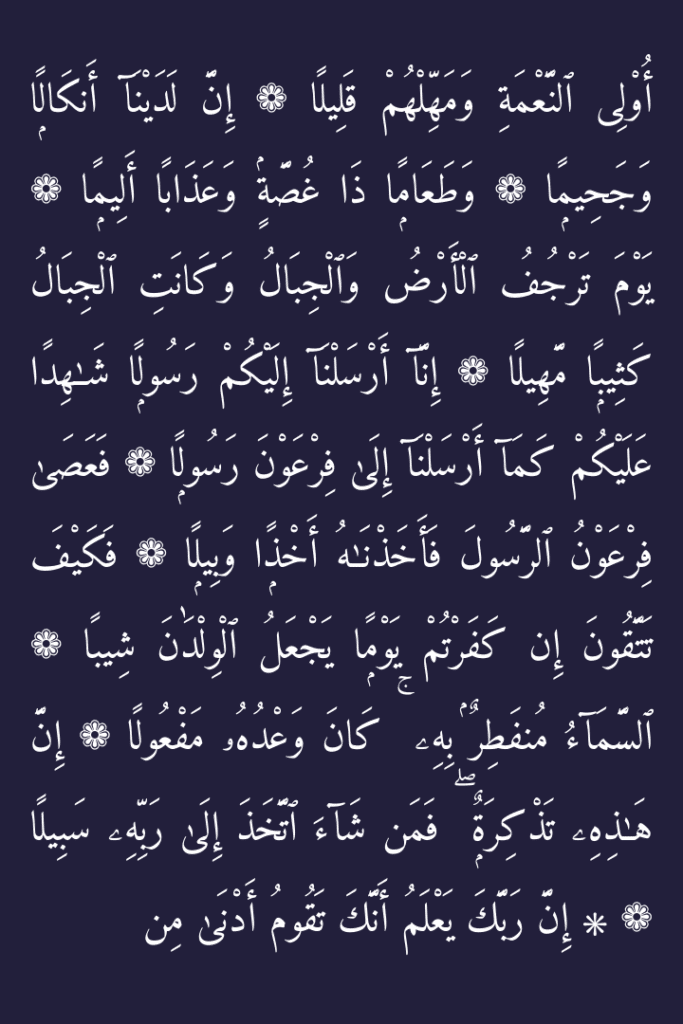 أُو۟لِى ٱلنَّعْمَةِ وَمَهِّلْهُمْ قَلِيلًا ۝ إِنَّ لَدَيْنَآ أَنكَالًۭا
وَجَحِيمًۭا ۝ وَطَعَامًۭا ذَا غُصَّةٍۢ وَعَذَابًا أَلِيمًۭا ۝
يَوْمَ تَرْجُفُ ٱلْأَرْضُ وَٱلْجِبَالُ وَكَانَتِ ٱلْجِبَالُ
كَثِيبًۭا مَّهِيلًا ۝ إِنَّآ أَرْسَلْنَآ إِلَيْكُمْ رَسُولًۭا شَـٰهِدًا
عَلَيْكُمْ كَمَآ أَرْسَلْنَآ إِلَىٰ فِرْعَوْنَ رَسُولًۭا ۝ فَعَصَىٰ
فِرْعَوْنُ ٱلرَّسُولَ فَأَخَذْنَـٰهُ أَخْذًۭا وَبِيلًۭا ۝ فَكَيْفَ
تَتَّقُونَ إِن كَفَرْتُمْ يَوْمًۭا يَجْعَلُ ٱلْوِلْدَٰنَ شِيبًا ۝
ٱلسَّمَآءُ مُنفَطِرٌۢ بِهِۦ ۚ كَانَ وَعْدُهُۥ مَفْعُولًا ۝ إِنَّ
هَـٰذِهِۦ تَذْكِرَةٌۭ ۖ فَمَن شَآءَ ٱتَّخَذَ إِلَىٰ رَبِّهِۦ سَبِيلًا
۝ * إِنَّ رَبَّكَ يَعْلَمُ أَنَّكَ تَقُومُ أَدْنَىٰ مِن